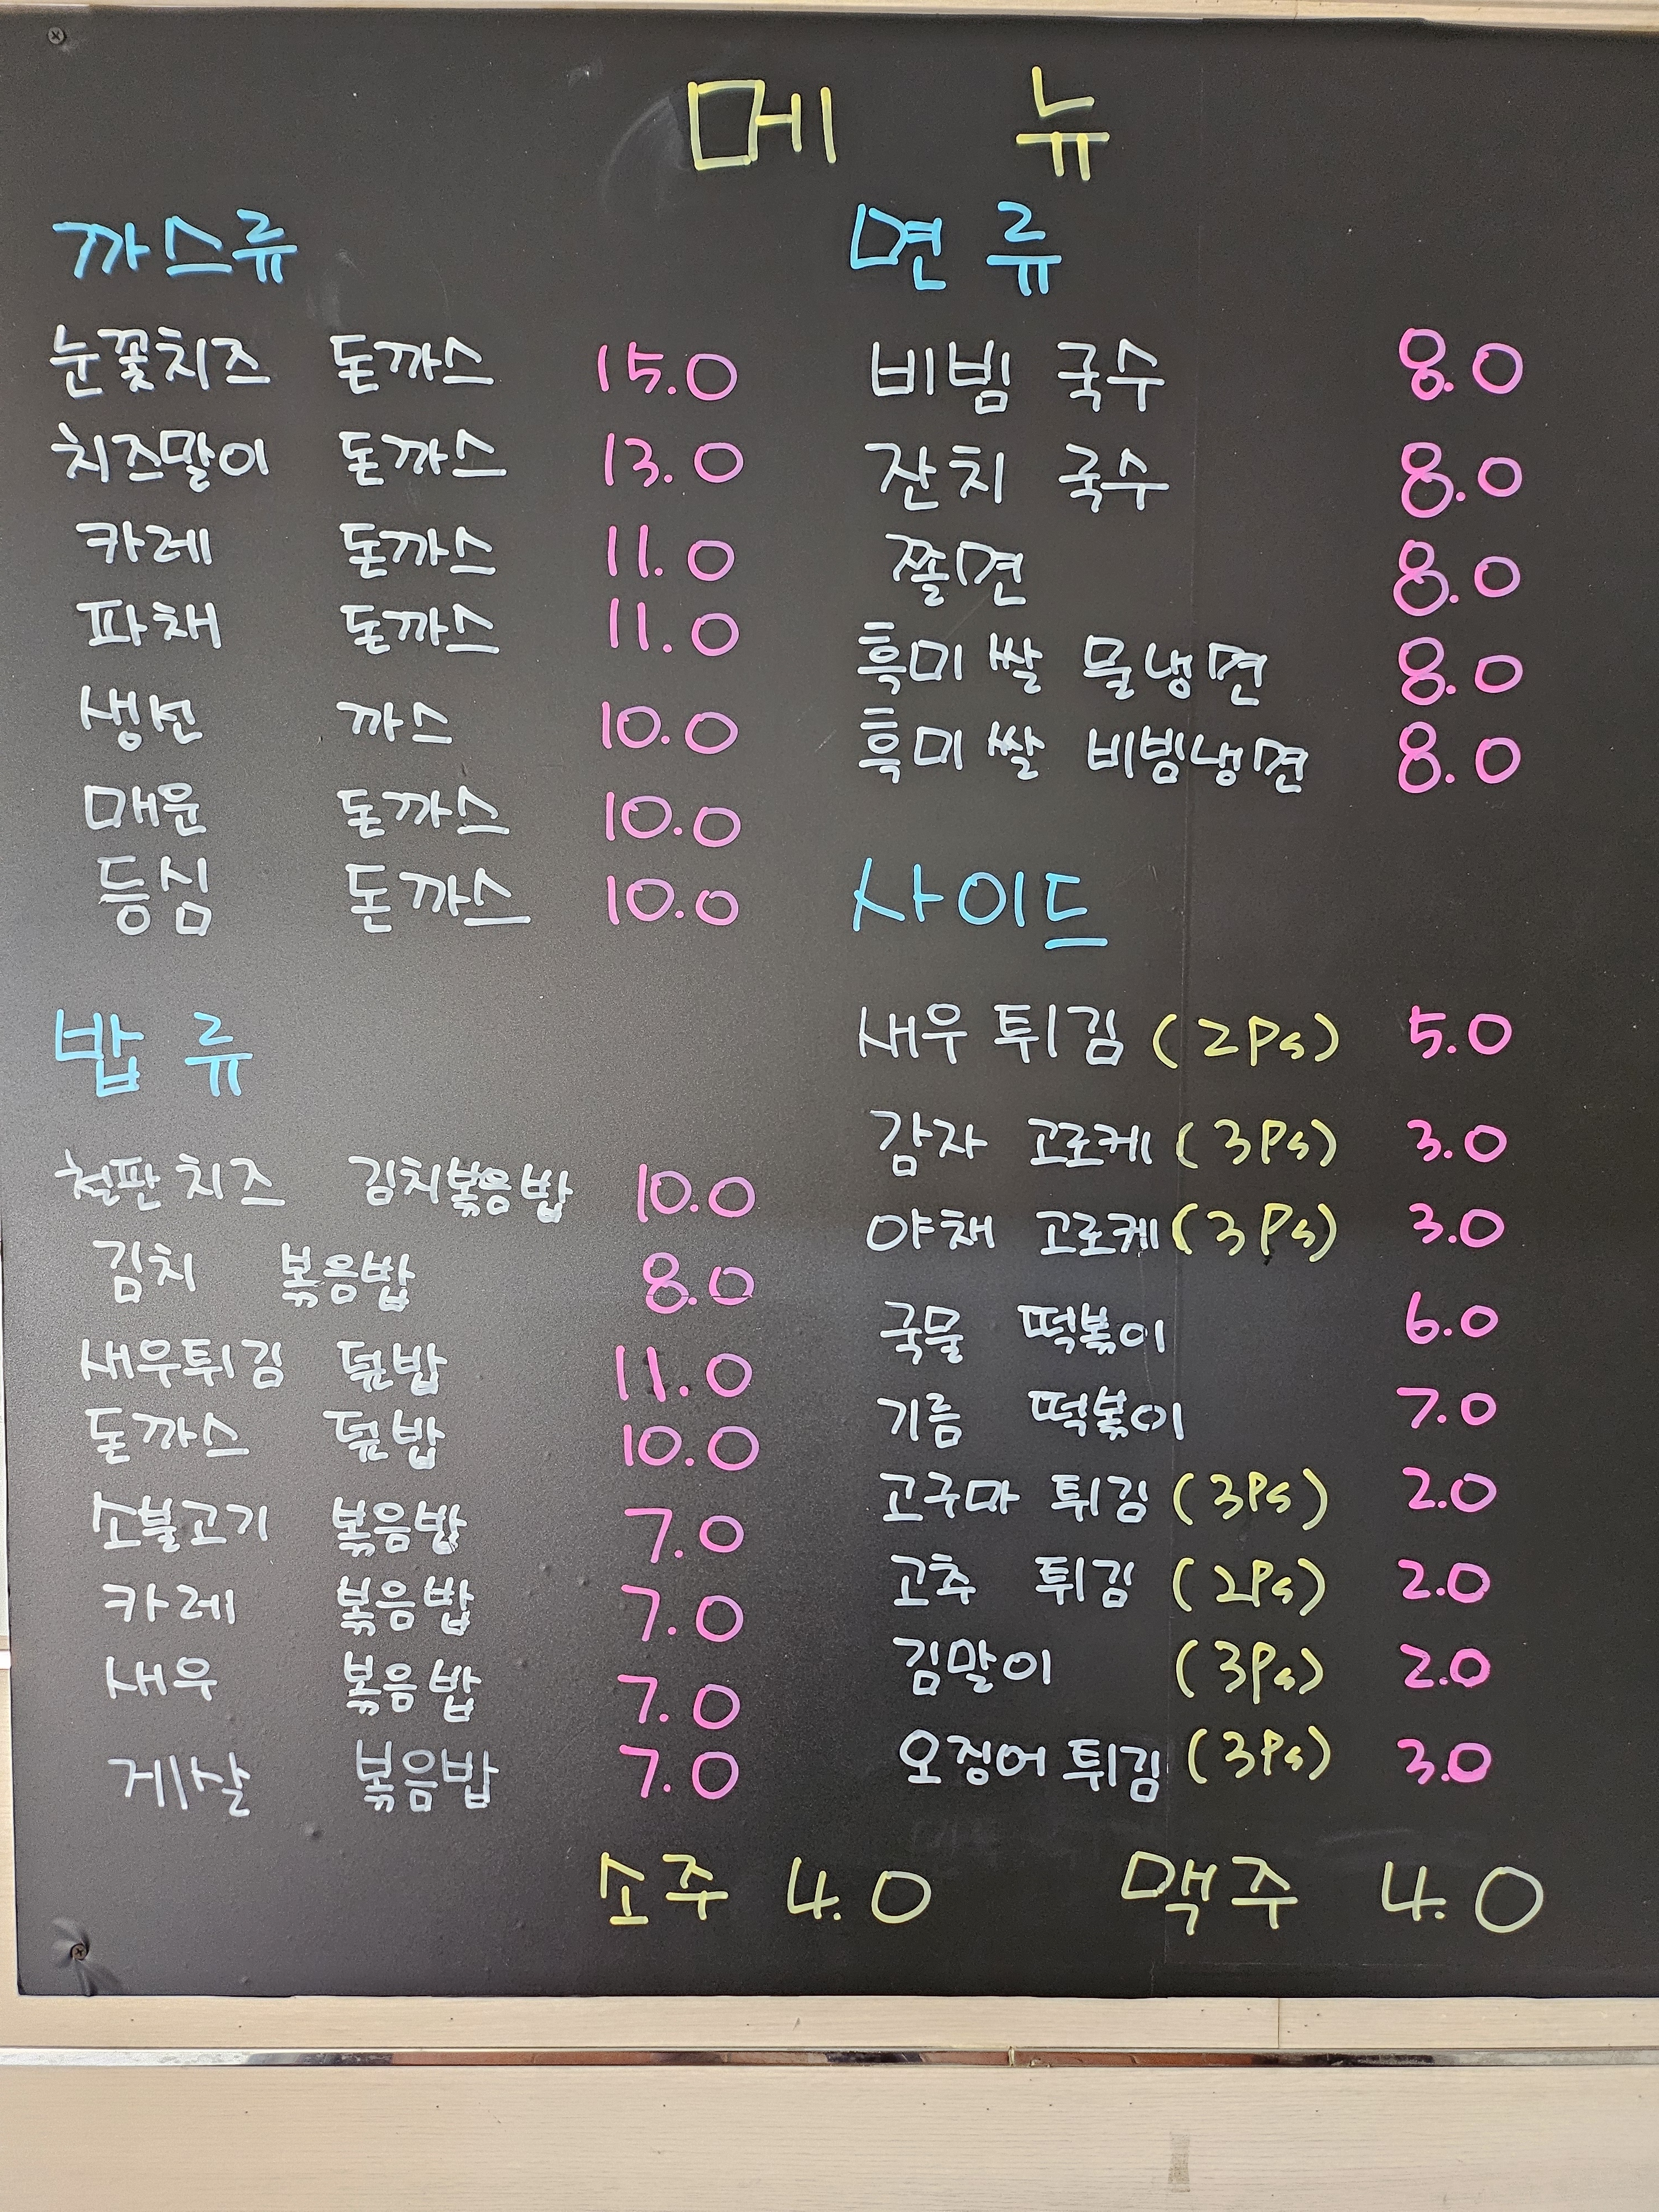 메 뉴
까스류
눈꽃치즈 돈까스 15.0
치즈말이 돈까스 13.0
카레 돈까스 11.0
파채 돈까스 11.0
생선 까스 10.0
매운 돈까스 10.0
등심 돈까스 10.0
밥 류
철판 치즈 김치볶음밥 10.0
김치 볶음밥 8.0
새우튀김 덮밥 11.0
돈까스 덮밥 10.0
소불고기 볶음밥 7.0
카레 볶음밥 7.0
새우 볶음밥 7.0
게살 볶음밥 7.0
면 류
비빔 국수 8.0
잔치 국수 8.0
쫄면 8.0
흑미 쌀 물냉면 8.0
흑미 쌀 비빔냉면 8.0
사이드
새우 튀김 (2Ps) 5.0
감자 고로케 (3Ps) 3.0
야채 고로케 (3Ps) 3.0
국물 떡볶이 6.0
기름 떡볶이 7.0
고구마 튀김 (3Ps) 2.0
고추 튀김 (2Ps) 2.0
김말이 (3Ps) 2.0
오징어 튀김 (3Ps) 3.0
소주 4.0 맥주 4.0